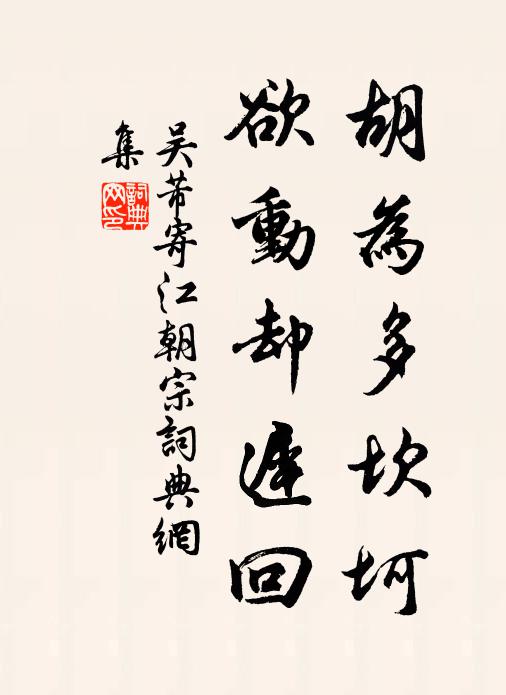 胡為多坎坷
欲動却遲回
吴芾寄江朝宗詞典網
集
詞典网印